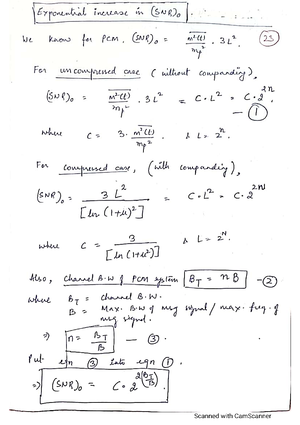 Exponential increase in (SNR)₀
23
We know for PCM, (SNR)₀ = m²(t)‾/mp² · 3L²
For uncompressed case (without companding),
(SNR)₀ = m²(t)‾/mp² · 3L² = C·L² = C·2²ⁿ — ①
where C = 3·m²(t)‾/mp² & L = 2ⁿ.
For compressed case, (with companding),
(SNR)₀ = 3L²/[ln(1+μ)²] = C·L² = C·2²ᴺ
where C = 3/[ln(1+μ²)] & L = 2ᴺ.
Also, Channel B.W of PCM system B_T = nB — ②
where B_T = Channel B.W.
B = Max. B.W of msg signal / max. freq. of
msg signal.
⇒ n = B_T/B — ③.
Put eqn ③ into eqn ①.
⇒ (SNR)₀ = C·2^2(B_T/B)
Scanned with CamScanner